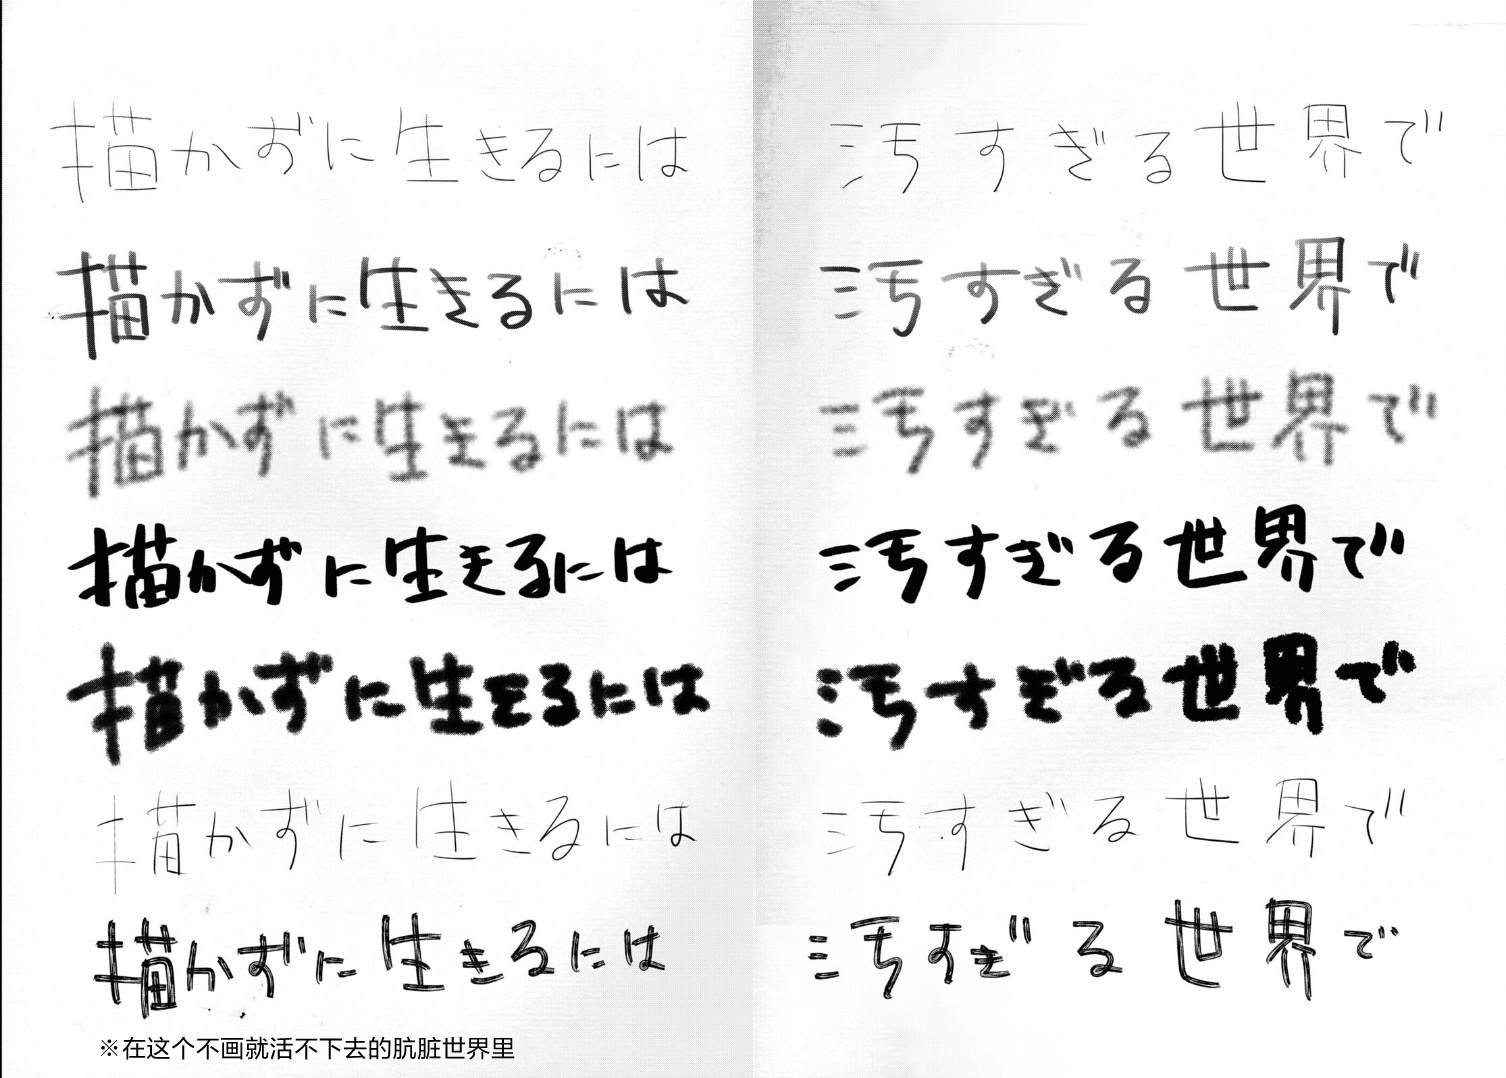 描かずに生きるには
描かずに生きるには
描かずに生きるには
描かずに生きるには
描かずに生きるには
描かずに生きるには
描かずに生きるには
※在这个不画就活不下去的肮脏世界里
汚すぎる世界で
汚すぎる世界で
汚すぎる世界で
汚すぎる世界で
汚すぎる世界で
汚すぎる世界で
汚すぎる世界で